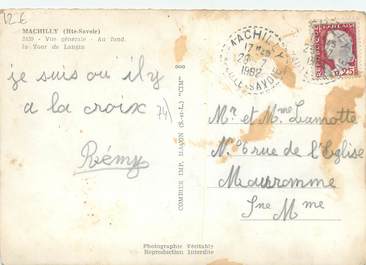 12.6
MACHILLY (Hte-Savoie)
2459 - Vue générale - Au fond,
la Tour de Langin
je suis où il y
a la croix
(74)
Rémy
COMBIER IMP. MACON (S.-et-L.) "CIM"
MACHILLY
17H
26-7
1962
HTE-SAVOIE
0,25
Mr et Mme Lamotte
N° 6 rue de l'Eglise
Maromme
Sne Mme
Photographie Véritable
Reproduction Interdite